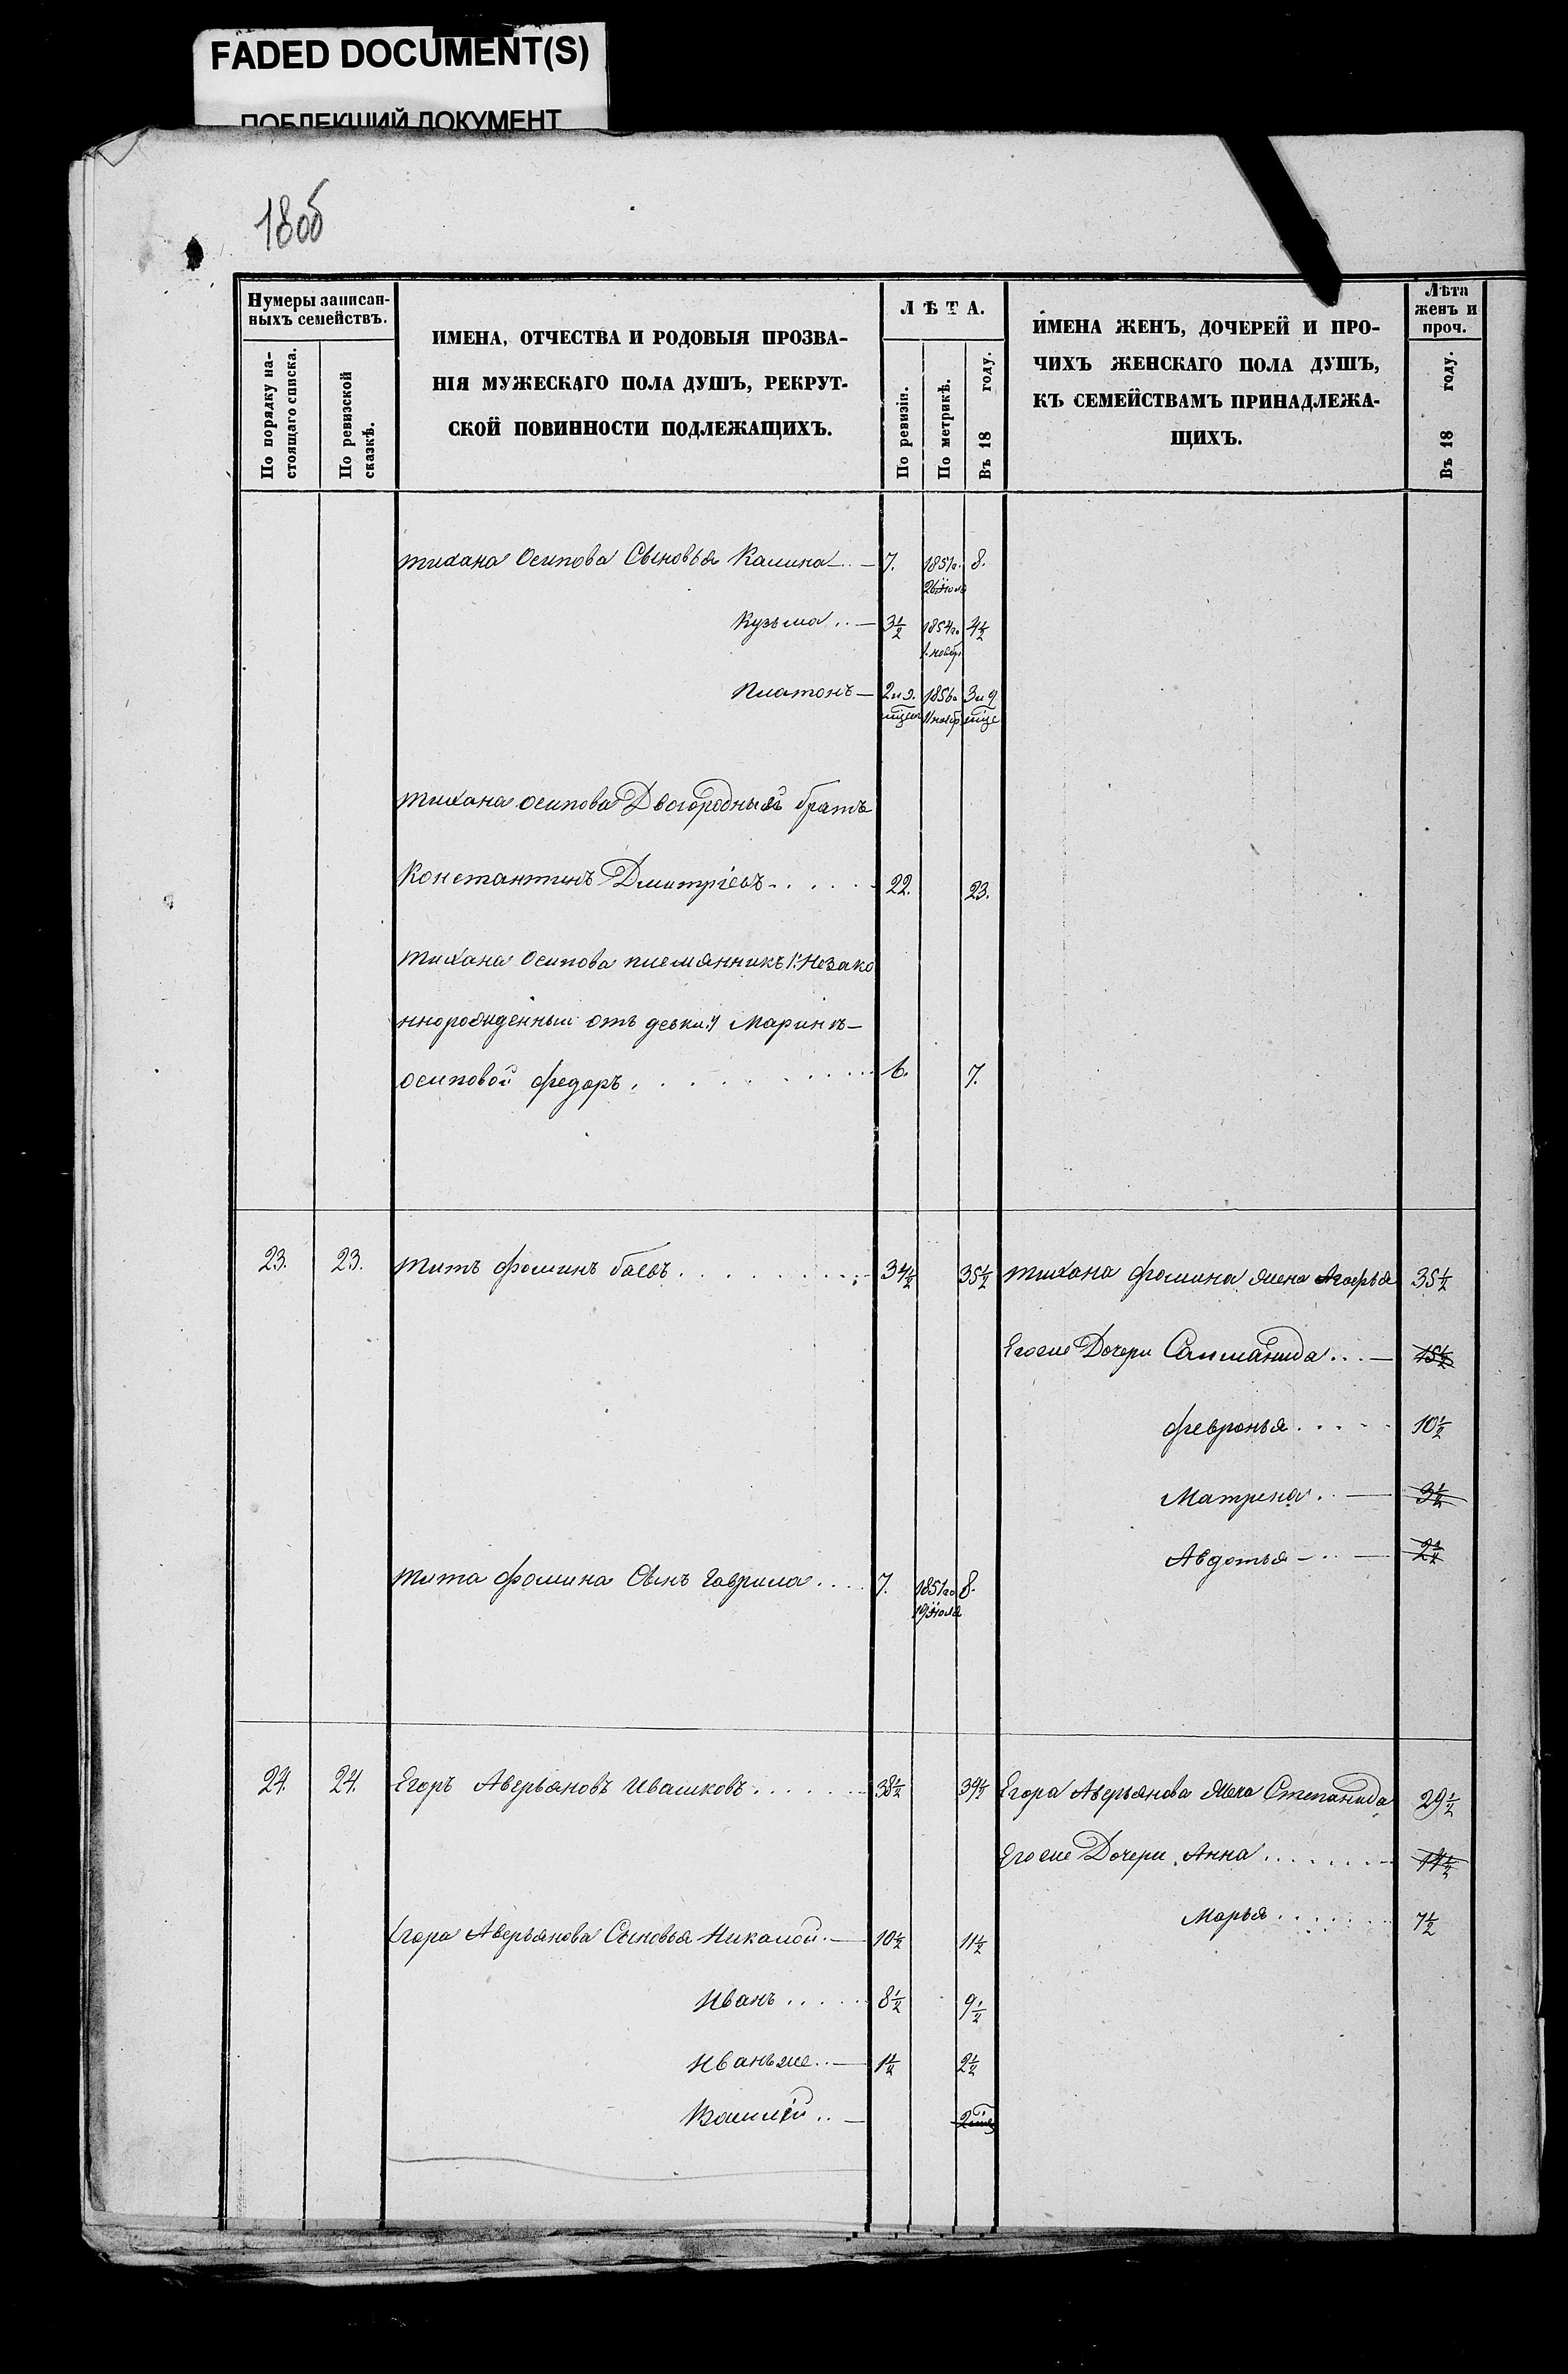 FADED DOCUMENT(S)
ПОБЛЕКШИЙ ДОКУМЕНТ
18об
Нумеры записан-
ныхъ семействъ.
По порядку на-
стоящаго списка.
По ревизской
сказкѣ.
ИМЕНА, ОТЧЕСТВА И РОДОВЫЯ ПРОЗВА-
НІЯ МУЖЕСКАГО ПОЛА ДУШЪ, РЕКРУТ-
СКОЙ ПОВИННОСТИ ПОДЛЕЖАЩИХЪ.
ЛѢТА.
По ревизіи.
По метрикѣ.
Въ 18 году.
ИМЕНА ЖЕНЪ, ДОЧЕРЕЙ И ПРО-
ЧИХЪ ЖЕНСКАГО ПОЛА ДУШЪ,
КЪ СЕМЕЙСТВАМЪ ПРИНАДЛЕЖА-
ЩИХЪ.
Лѣта
женъ и
проч.
Въ 18 году.
Тихана Осипова Сыновья Калина 7. 1851го 8.
26 Июля
Кузьма 3½ 1854го 4½
1. ноябр.
Платонъ 2 и 9. 1856го 3 и 9
11 ноябр.
Тихана осипова Двоюродный братъ
Константинъ Дмитріевъ 22. 23.
Тихана Осипова племянникъ /:Незако
ннорожденный отъ девки:/ Марины
осиповой федоръ 6. 7.
23. 23. Титъ фоминъ баевъ 34½ 35½ Тихана фомина жена Агафья 35½
Егоже Дочери Саломанида 15½
февронья 10½
Матрена 3½
Авдотья
Тита фомина Сынъ Гаврила 7. 1851го 8.
19 Июля
24 24. Егоръ Аверьяновъ Ивашковъ 38½ 39½ Егора Аверьянова Жена Степанида 29½
Егоже Дочери Анна 14½
Марья 7½
Егора Аверьянова Сыновья Николай 10½ 11½
Иванъ 8½ 9½
Иванъже 1½ 2½
Василій